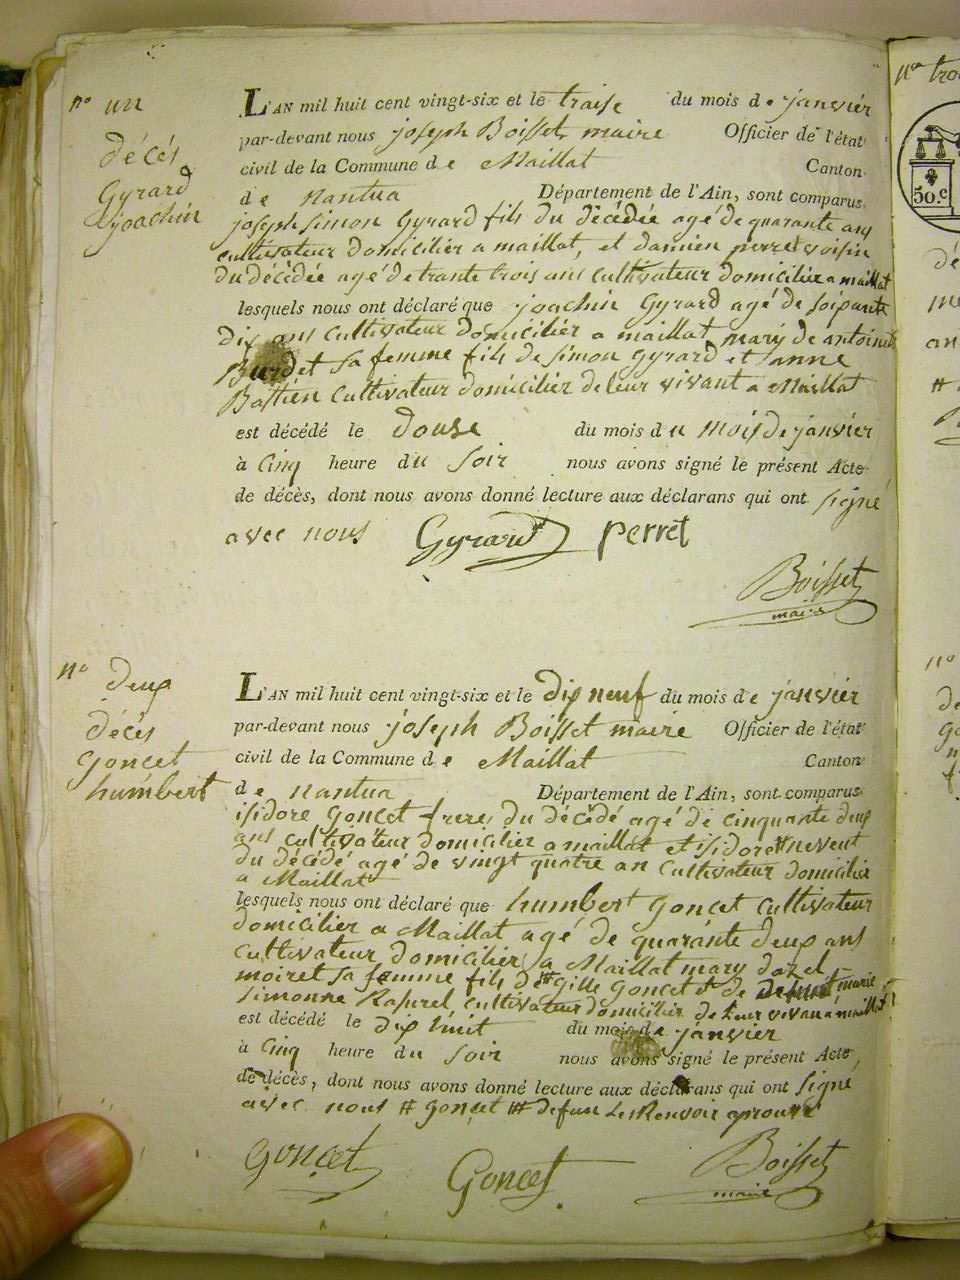 n° un
décés
Gyrard
joachin
L'AN mil huit cent vingt-six et le traise du mois de janvier
par-devant nous joseph Boisset maire Officier de l'état
civil de la Commune de Maillat Canton
de nantua Département de l'Ain, sont comparus
joseph simon Gyrard fils du décédée agé de quarante ans
cultivateur domicilier a maillat, et damien perret voisin
du décédée agé de trante trois ans cultivateur domiciliée a maillat
lesquels nous ont déclaré que joachin Gyrard agé de soipante
dix ans cultivateur domicilier a maillat mary de antoinette
Burdet sa femme fils de simon Gyrard et anne
Bastien cultivateur domicilier de leur vivant a Maillat
est décédé le douse du mois du mois de janvier
à cinq heure du soir nous avons signé le présent Acte
de décès, dont nous avons donné lecture aux déclarans qui ont signé
avec nous Gyrard perret
Boisset
maire
n° deup
décés
goncet
humbert
L'AN mil huit cent vingt-six et le dix neuf du mois de janvier
par-devant nous joseph Boisset maire Officier de l'état
civil de la Commune de Maillat Canton
de nantua Département de l'Ain, sont comparus
isidore Goncet freres du décédé agé de cinquante deup
ans cultivateur domicilier a maillat et isidore # nevent
du décédé agé de vingt quatre an cultivateur domicilié
a Maillat
lesquels nous ont déclaré que humbert goncet cultivateur
domicilier a Maillat agé de quarante deup ans
cultivateur domicilier a Maillat mary
moiret sa femme fils de gille goncet et de marie
simonne cultivateur domicilier de leur vivan a maillat
est décédé le dix huit du mois de janvier
à cinq heure du soir nous avons signé le présent Acte
de décès, dont nous avons donné lecture aux déclarans qui ont signé
avec nous # goncet ## defun Les Renvoir aprouvé
goncet Goncet Boisset
maire
n° trois
50.c
dé
an
n°